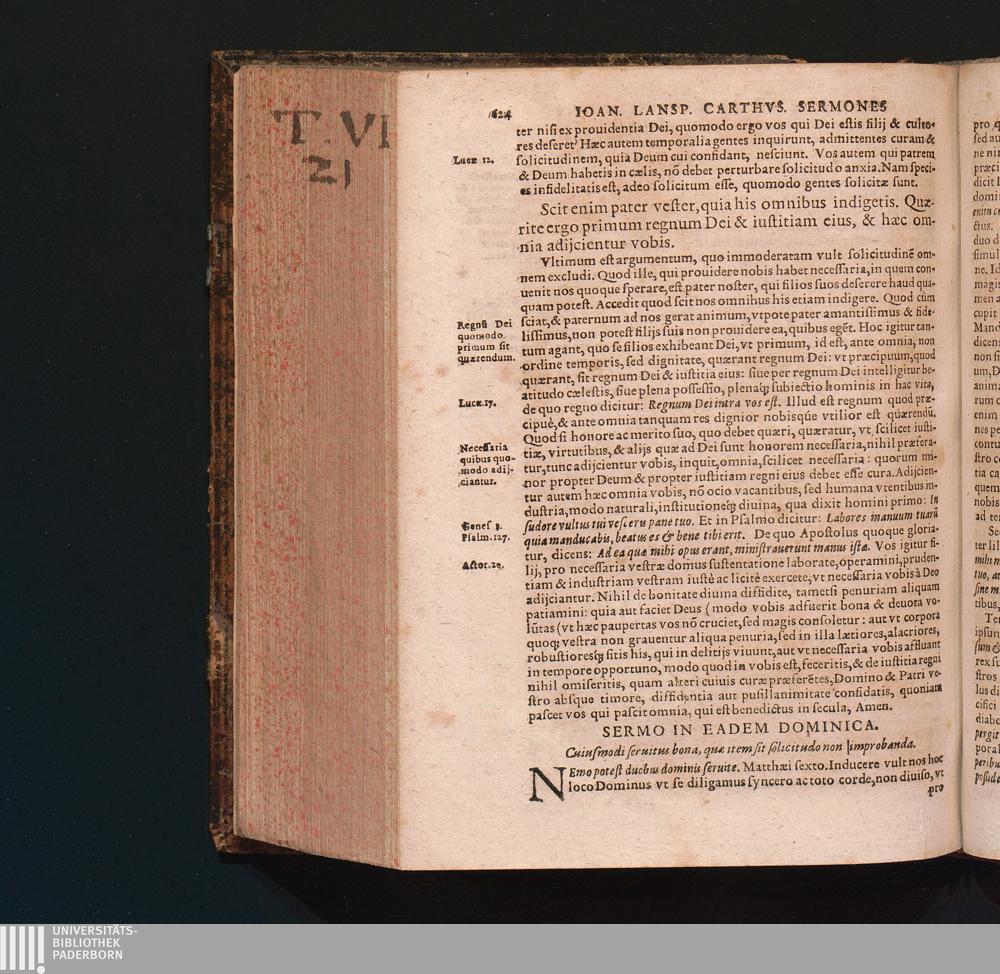 T. VI
21
624 IOAN. LANSP. CARTHVS. SERMONES
ter nisi ex prouidentia Dei, quomodo ergo vos qui Dei estis filij & culto-
res deseret? Hæc autem temporalia gentes inquirunt, admittentes curam &
Lucæ 12. solicitudinem, quia Deum cui confidant, nesciunt. Vos autem qui patrem
& Deum habetis in cælis, nõ debet perturbare solicitudo anxia. Nam speci-
es infidelitatis est, adeo solicitum esse, quomodo gentes solicitæ sunt.
Scit enim pater vester, quia his omnibus indigetis. Quæ-
rite ergo primum regnum Dei & iustitiam eius, & hæc om-
nia adijcientur vobis.
Vltimum est argumentum, quo immoderatam vult solicitudinẽ om-
nem excludi. Quod ille, qui prouidere nobis habet necessaria, in quem con-
uenit nos quoque sperare, est pater noster, qui filios suos deserere haud qua-
quam potest. Accedit quod scit nos omnibus his etiam indigere. Quod cùm
sciat, & paternum ad nos gerat animum, vtpote pater amantissimus & fide-
lissimus, non potest filijs suis non prouidere ea, quibus egẽt. Hoc igitur tan-
tum agant, quo se filios exhibeant Dei, vt primum, id est, ante omnia, non
ordine temporis, sed dignitate, quærant regnum Dei: vt præcipuum, quod
quærant, sit regnum Dei & iustitia eius: siue per regnum Dei intelligitur be-
atitudo cælestis, siue plena possessio, plenaq; subiectio hominis in hac vita,
de quo regno dicitur: Regnum Dei intra vos est. Illud est regnum quod præ-
cipuè, & ante omnia tanquam res dignior nobisque vtilior est quærendũ.
Quod si honore ac merito suo, quo debet quæri, quæratur, vt scilicet iusti-
tiæ, virtutibus, & alijs quæ ad Dei sunt honorem necessaria, nihil præfera-
tur, tunc adijcientur vobis, inquit, omnia, scilicet necessaria: quorum mi-
nor propter Deum & propter iustitiam regni eius debet esse cura. Adijcien-
tur autem hæc omnia vobis, nõ ocio vacantibus, sed humana vtentibus in-
dustria, modo naturali, institutioneq; diuina, qua dixit homini primo: In
sudore vultus tui vesceris pane tuo. Et in Psalmo dicitur: Labores manuum tuarũ
quia manducabis, beatus es & bene tibi erit. De quo Apostolus quoque gloria-
tur, dicens: Ad ea quæ mihi opus erant, ministrauerunt manus istæ. Vos igitur fi-
lij, pro necessaria vestræ domus sustentatione laborate, operamini, pruden-
tiam & industriam vestram iustè ac licitè exercete, vt necessaria vobis à Deo
adijciantur. Nihil de bonitate diuina diffidite, tametsi penuriam aliquam
patiamini: quia aut faciet Deus (modo vobis adfuerit bona & deuota vo-
lũtas (vt hæc paupertas vos nõ cruciet, sed magis consoletur: aut vt corpora
quoq; vestra non grauentur aliqua penuria, sed in illa lætiores, alacriores,
robustioresq; sitis his, qui in delitijs viuunt, aut vt necessaria vobis affluant
in tempore opportuno, modo quod in vobis est, feceritis, & de iustitia regni
nihil omiseritis, quam alteri cuiuis curæ præferẽtes, Domino & Patri ve-
stro absque timore, diffidentia aut pusillanimitate confidatis, quoniam
pascet vos qui pascit omnia, qui est benedictus in secula, Amen.
Regnũ Dei
quomodo
primum sit
quærendum.
Lucæ. 17.
Necessaria
quibus quo-
modo adij-
ciantur.
Genes 3.
Psalm. 127.
Actor. 20.
SERMO IN EADEM DOMINICA.
Cuiusmodi seruitus bona, quæ item sit solicitudo non improbanda.
NEmo potest duobus dominis seruire. Matthæi sexto. Inducere vult nos hoc
loco Dominus vt se diligamus syncero ac toto corde, non diuiso, vt
pro
UNIVERSITÄTS-
BIBLIOTHEK
PADERBORN